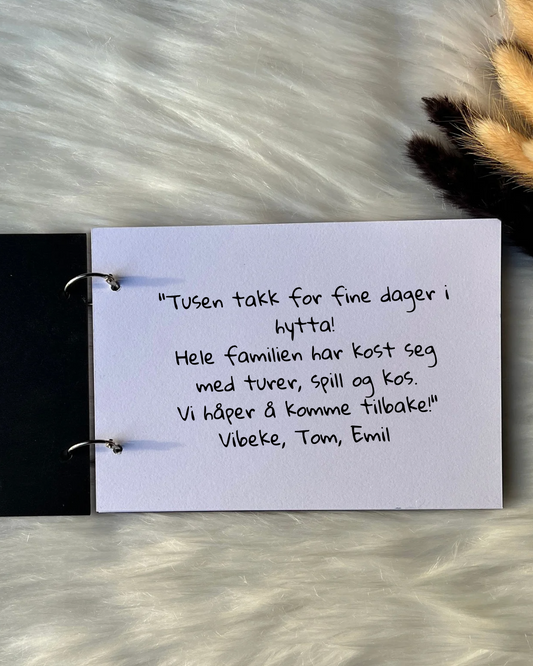 "Tusen takk for fine dager i
hytta!
Hele familien har kost seg
med turer, spill og kos.
Vi håper å komme tilbake!"
Vibeke, Tom, Emil